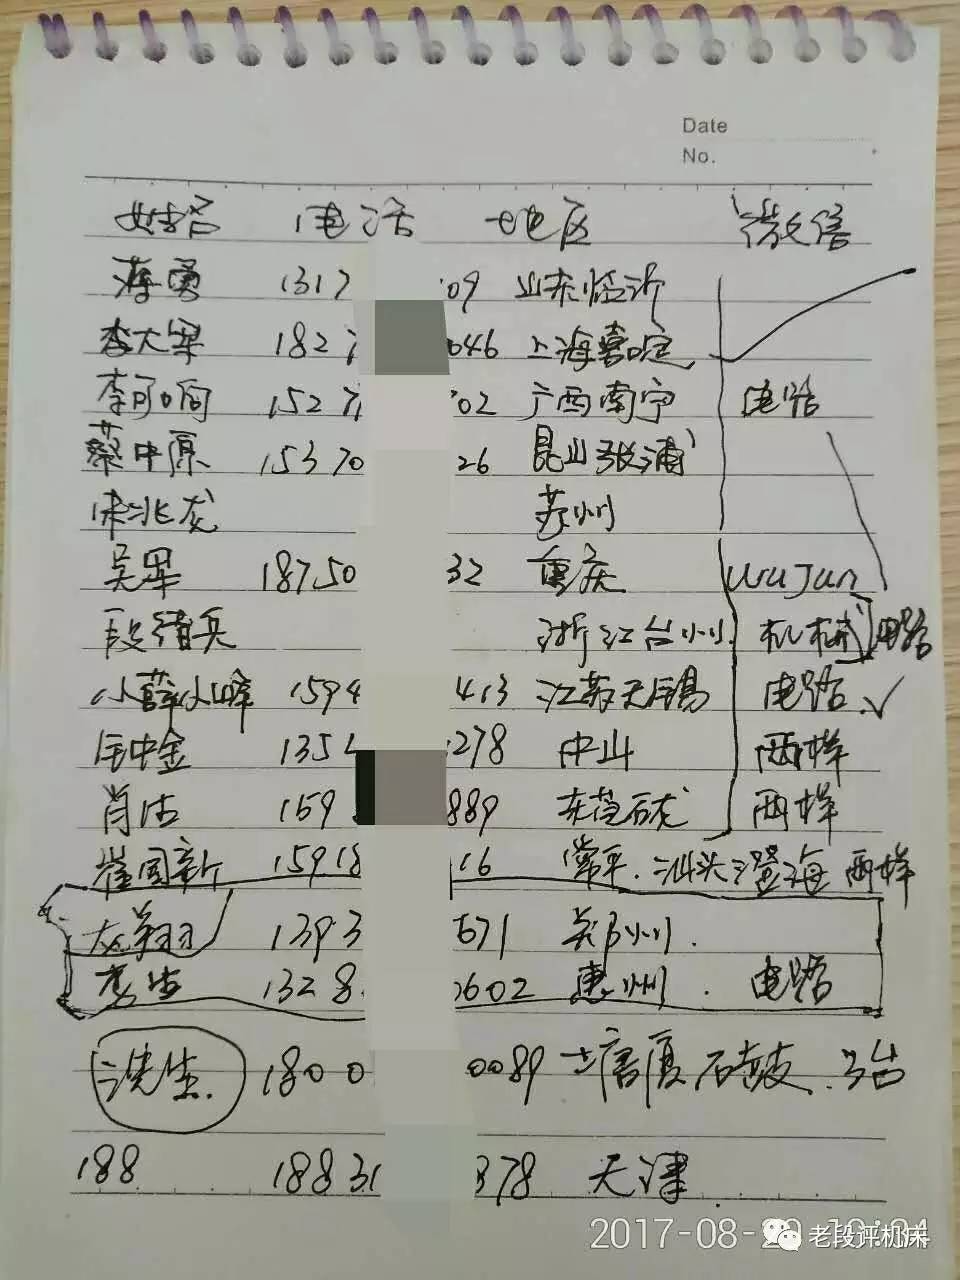 Date
No.
姓名 电话 地区 微信
蒋勇 1317 09 山东临沂
李大军 182 046 上海嘉定
1527 02 广西南宁 电路
蔡中原 15370 26 昆山张浦
兆龙 苏州
吴军 18750 32 重庆 WuJun
段绪兵 浙江台州 机械 电路
小薛 峰 1594 413 江苏无锡 电路 ✓
中金 1354 278 中山 两样
肖洁 159 889 东莞石龙 两样
崔国新 15918 16 常平.汕头澄海 两样
龙翔 1393 671 郑州.
李生 1328 0602 惠州. 电路
洗生. 1800 0089 塘厦石鼓. 3台
188 18831 378 天津
2017-08-20
老段评机床